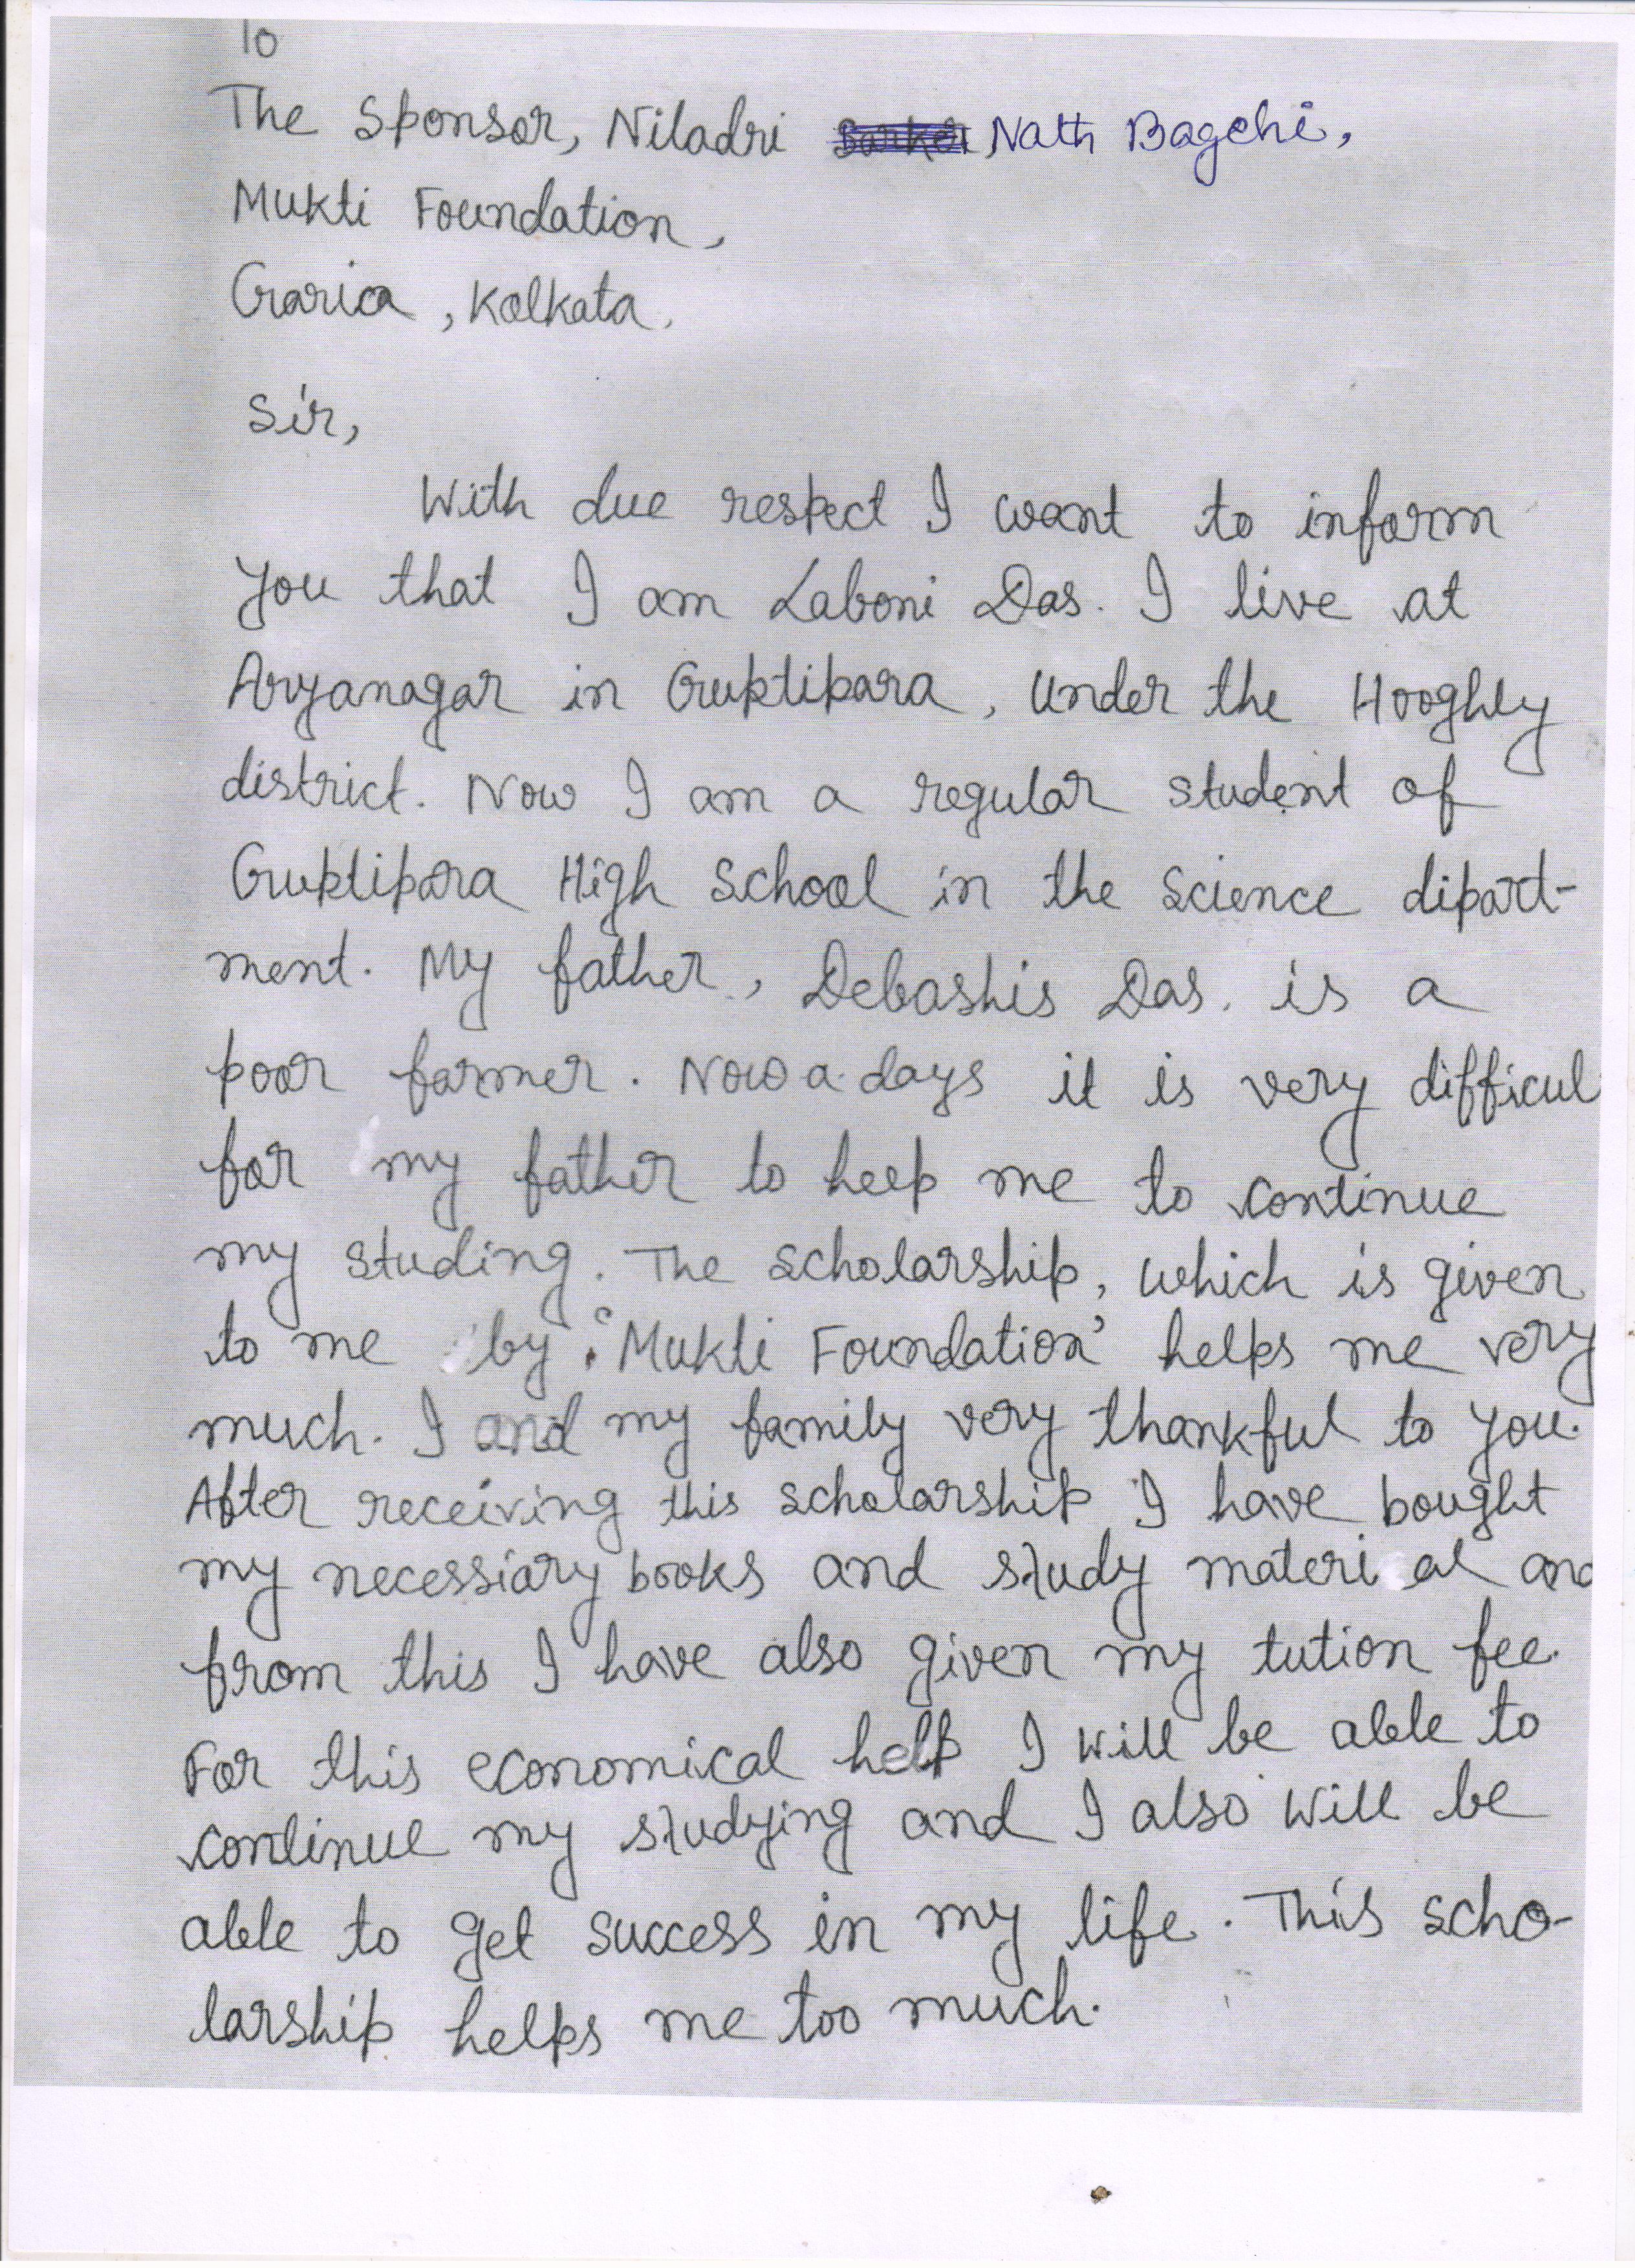 To
The Sponsor, Niladri Nath Bagchi,
Mukti Foundation,
Garia, Kolkata.
Sir,
With due respect I want to inform
you that I am Laboni Das. I live at
Aryanagar in Guptipara, under the Hooghly
district. Now I am a regular student of
Guptipara High School in the Science dipart-
ment. My father, Debashis Das, is a
poor farmer. Now a days it is very difficul
for my father to help me to continue
my studing. The scholarship, which is given
to me by 'Mukti Foundation' helps me very
much. I and my family very thankful to you.
After receiving this scholarship I have bought
my necessiary books and study material and
from this I have also given my tution fee.
For this economical help I will be able to
continue my studying and I also will be
able to get success in my life. This scho-
larship helps me too much.